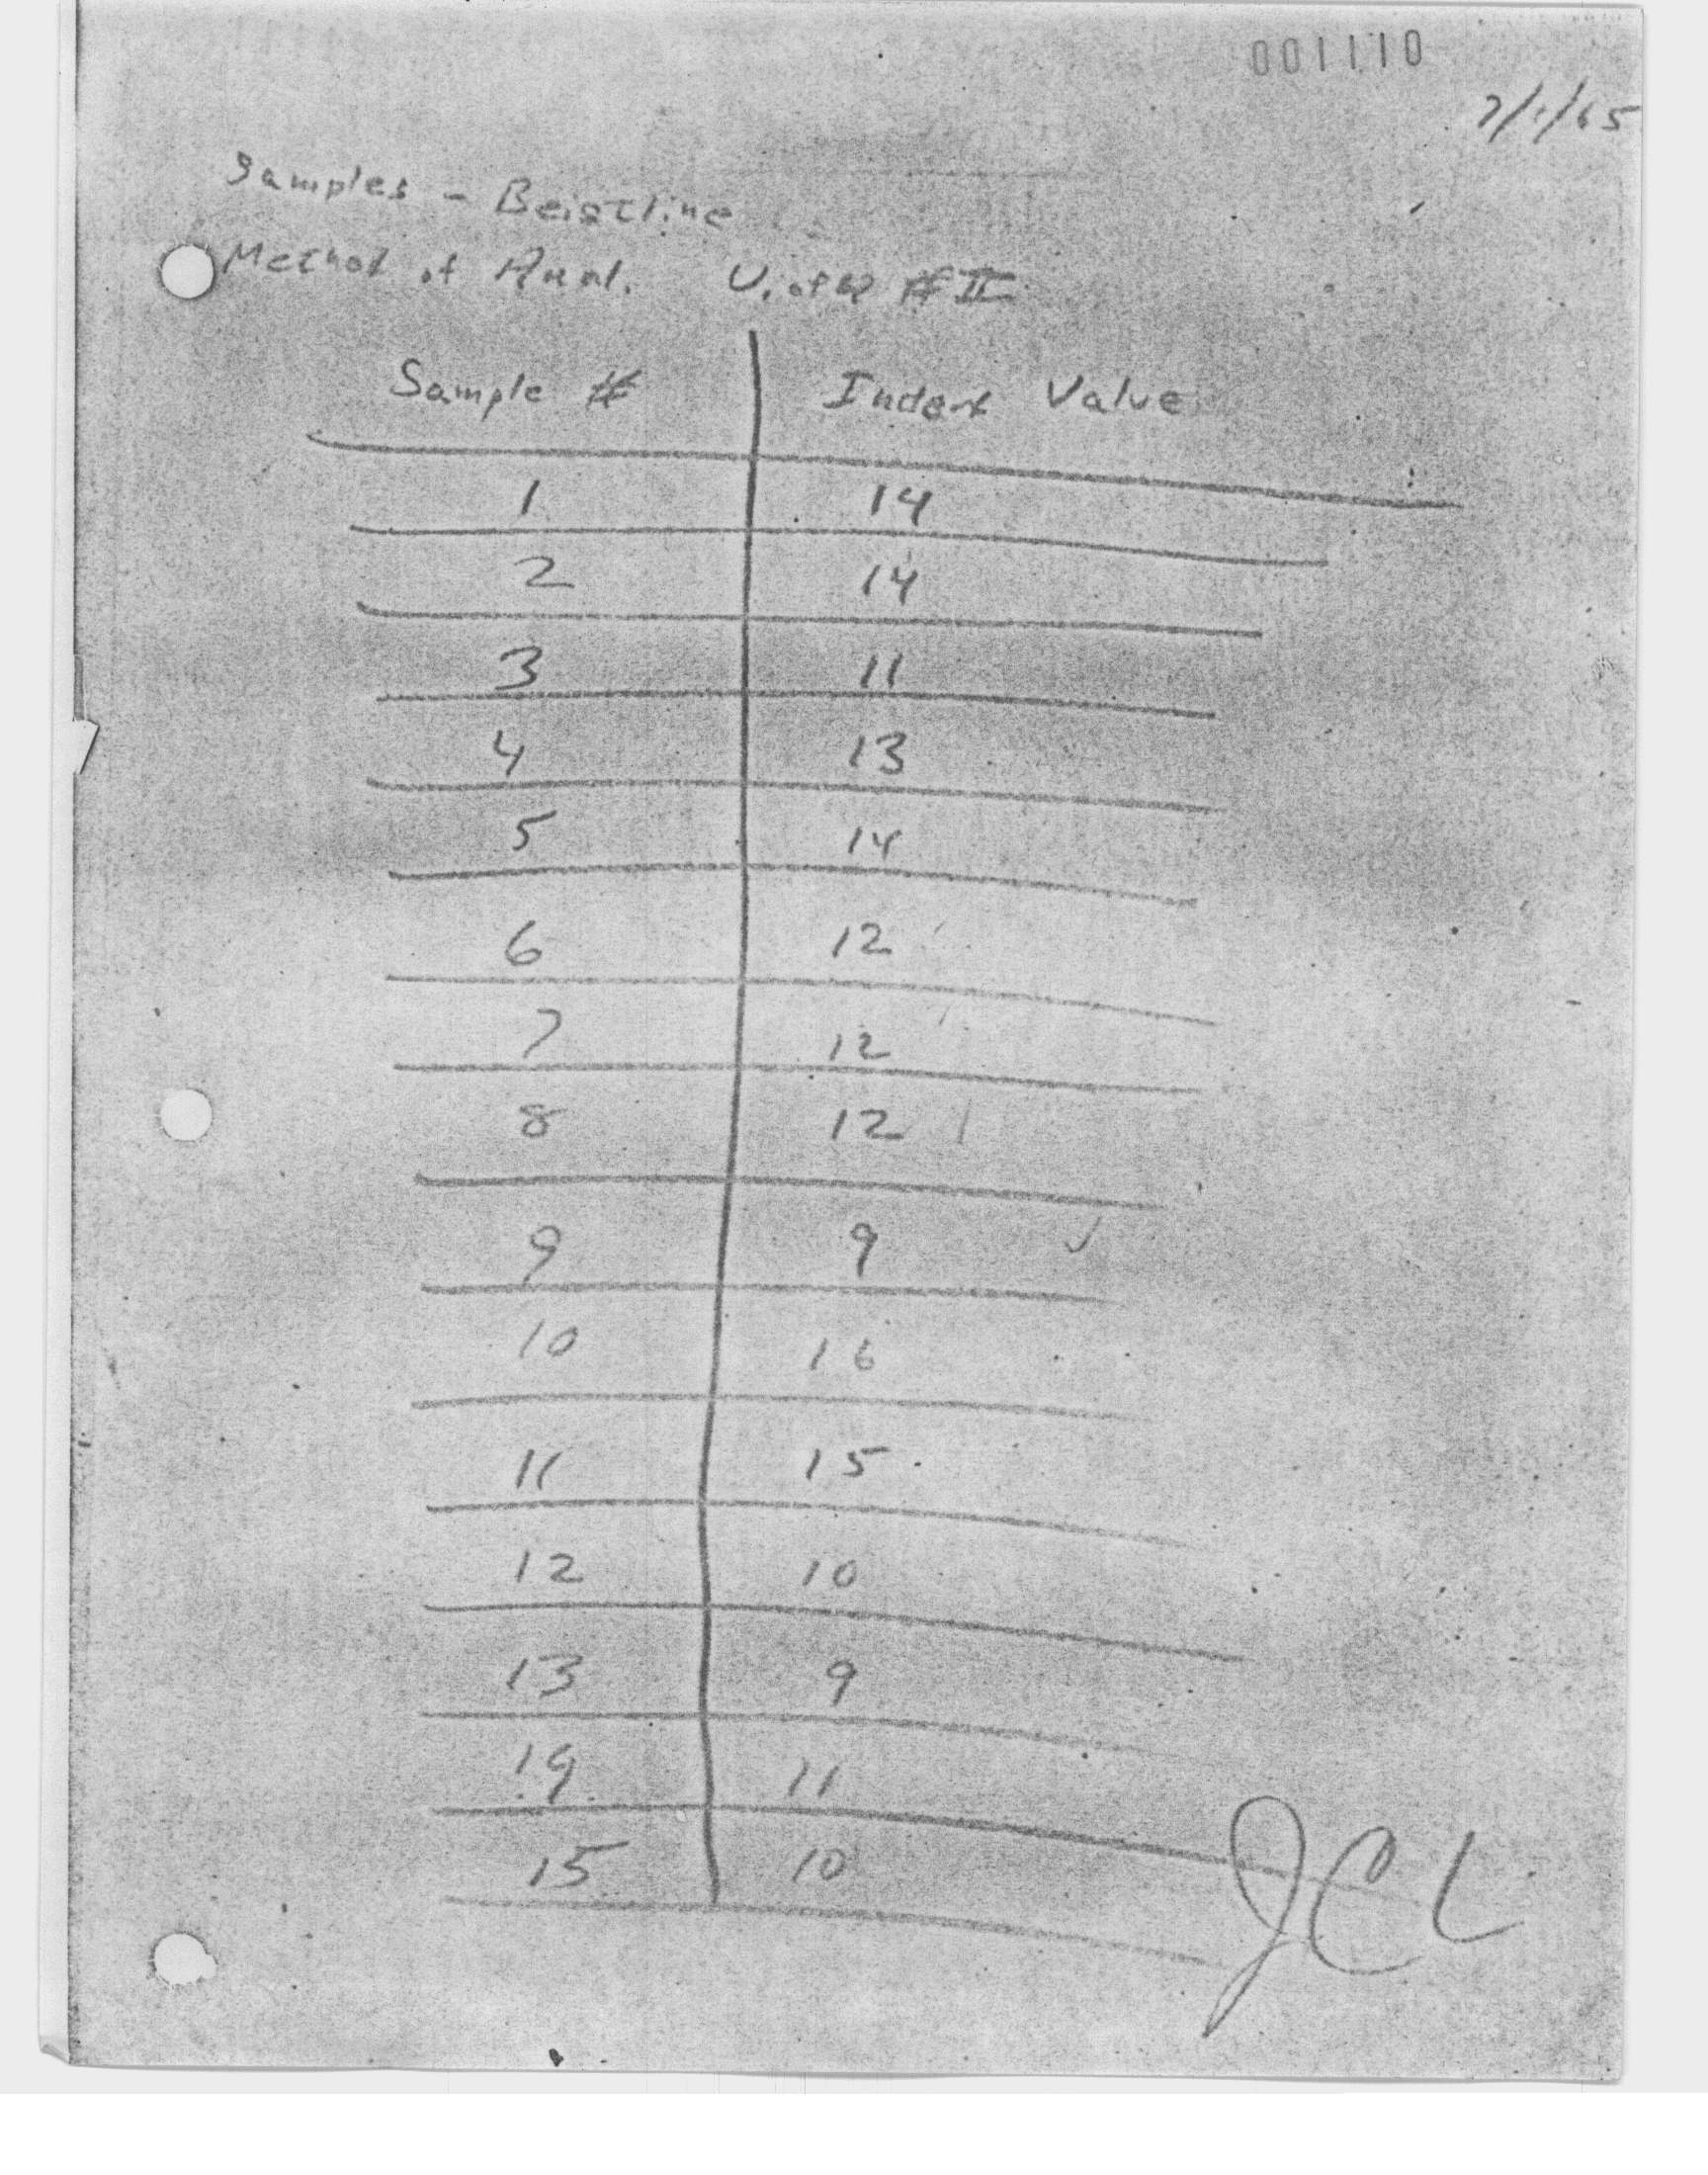 001110
7/1/65
Samples - Beistline
Method of Anal. U. of W #II
Sample # Index Value
1 14
2 14
3 11
4 13
5 14
6 12
7 12
8 12
9 9 ✓
10 16
11 15
12 10
13 9
14 11
15 10
JCL